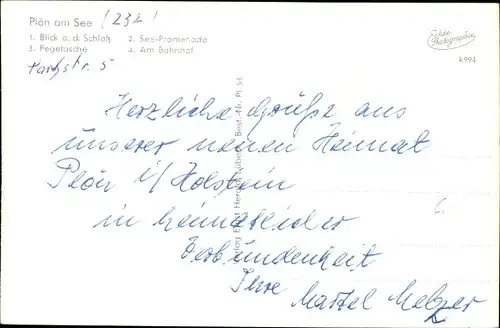 Plön am See (232)
1. Blick a. d. Schloß 2. See-Promenade
3. Fegetasche 4. Am Bahnhof
Parkstr. 5
Echte
Photographie
K994
Herzliche Grüße aus
unserer neuen Heimat
Plön i/Holstein
in heimatlicher
Verbundenheit
Ihre Martel Melzer
Verlag Ernst Hermann Lübeck Best.-Nr. Pl 53